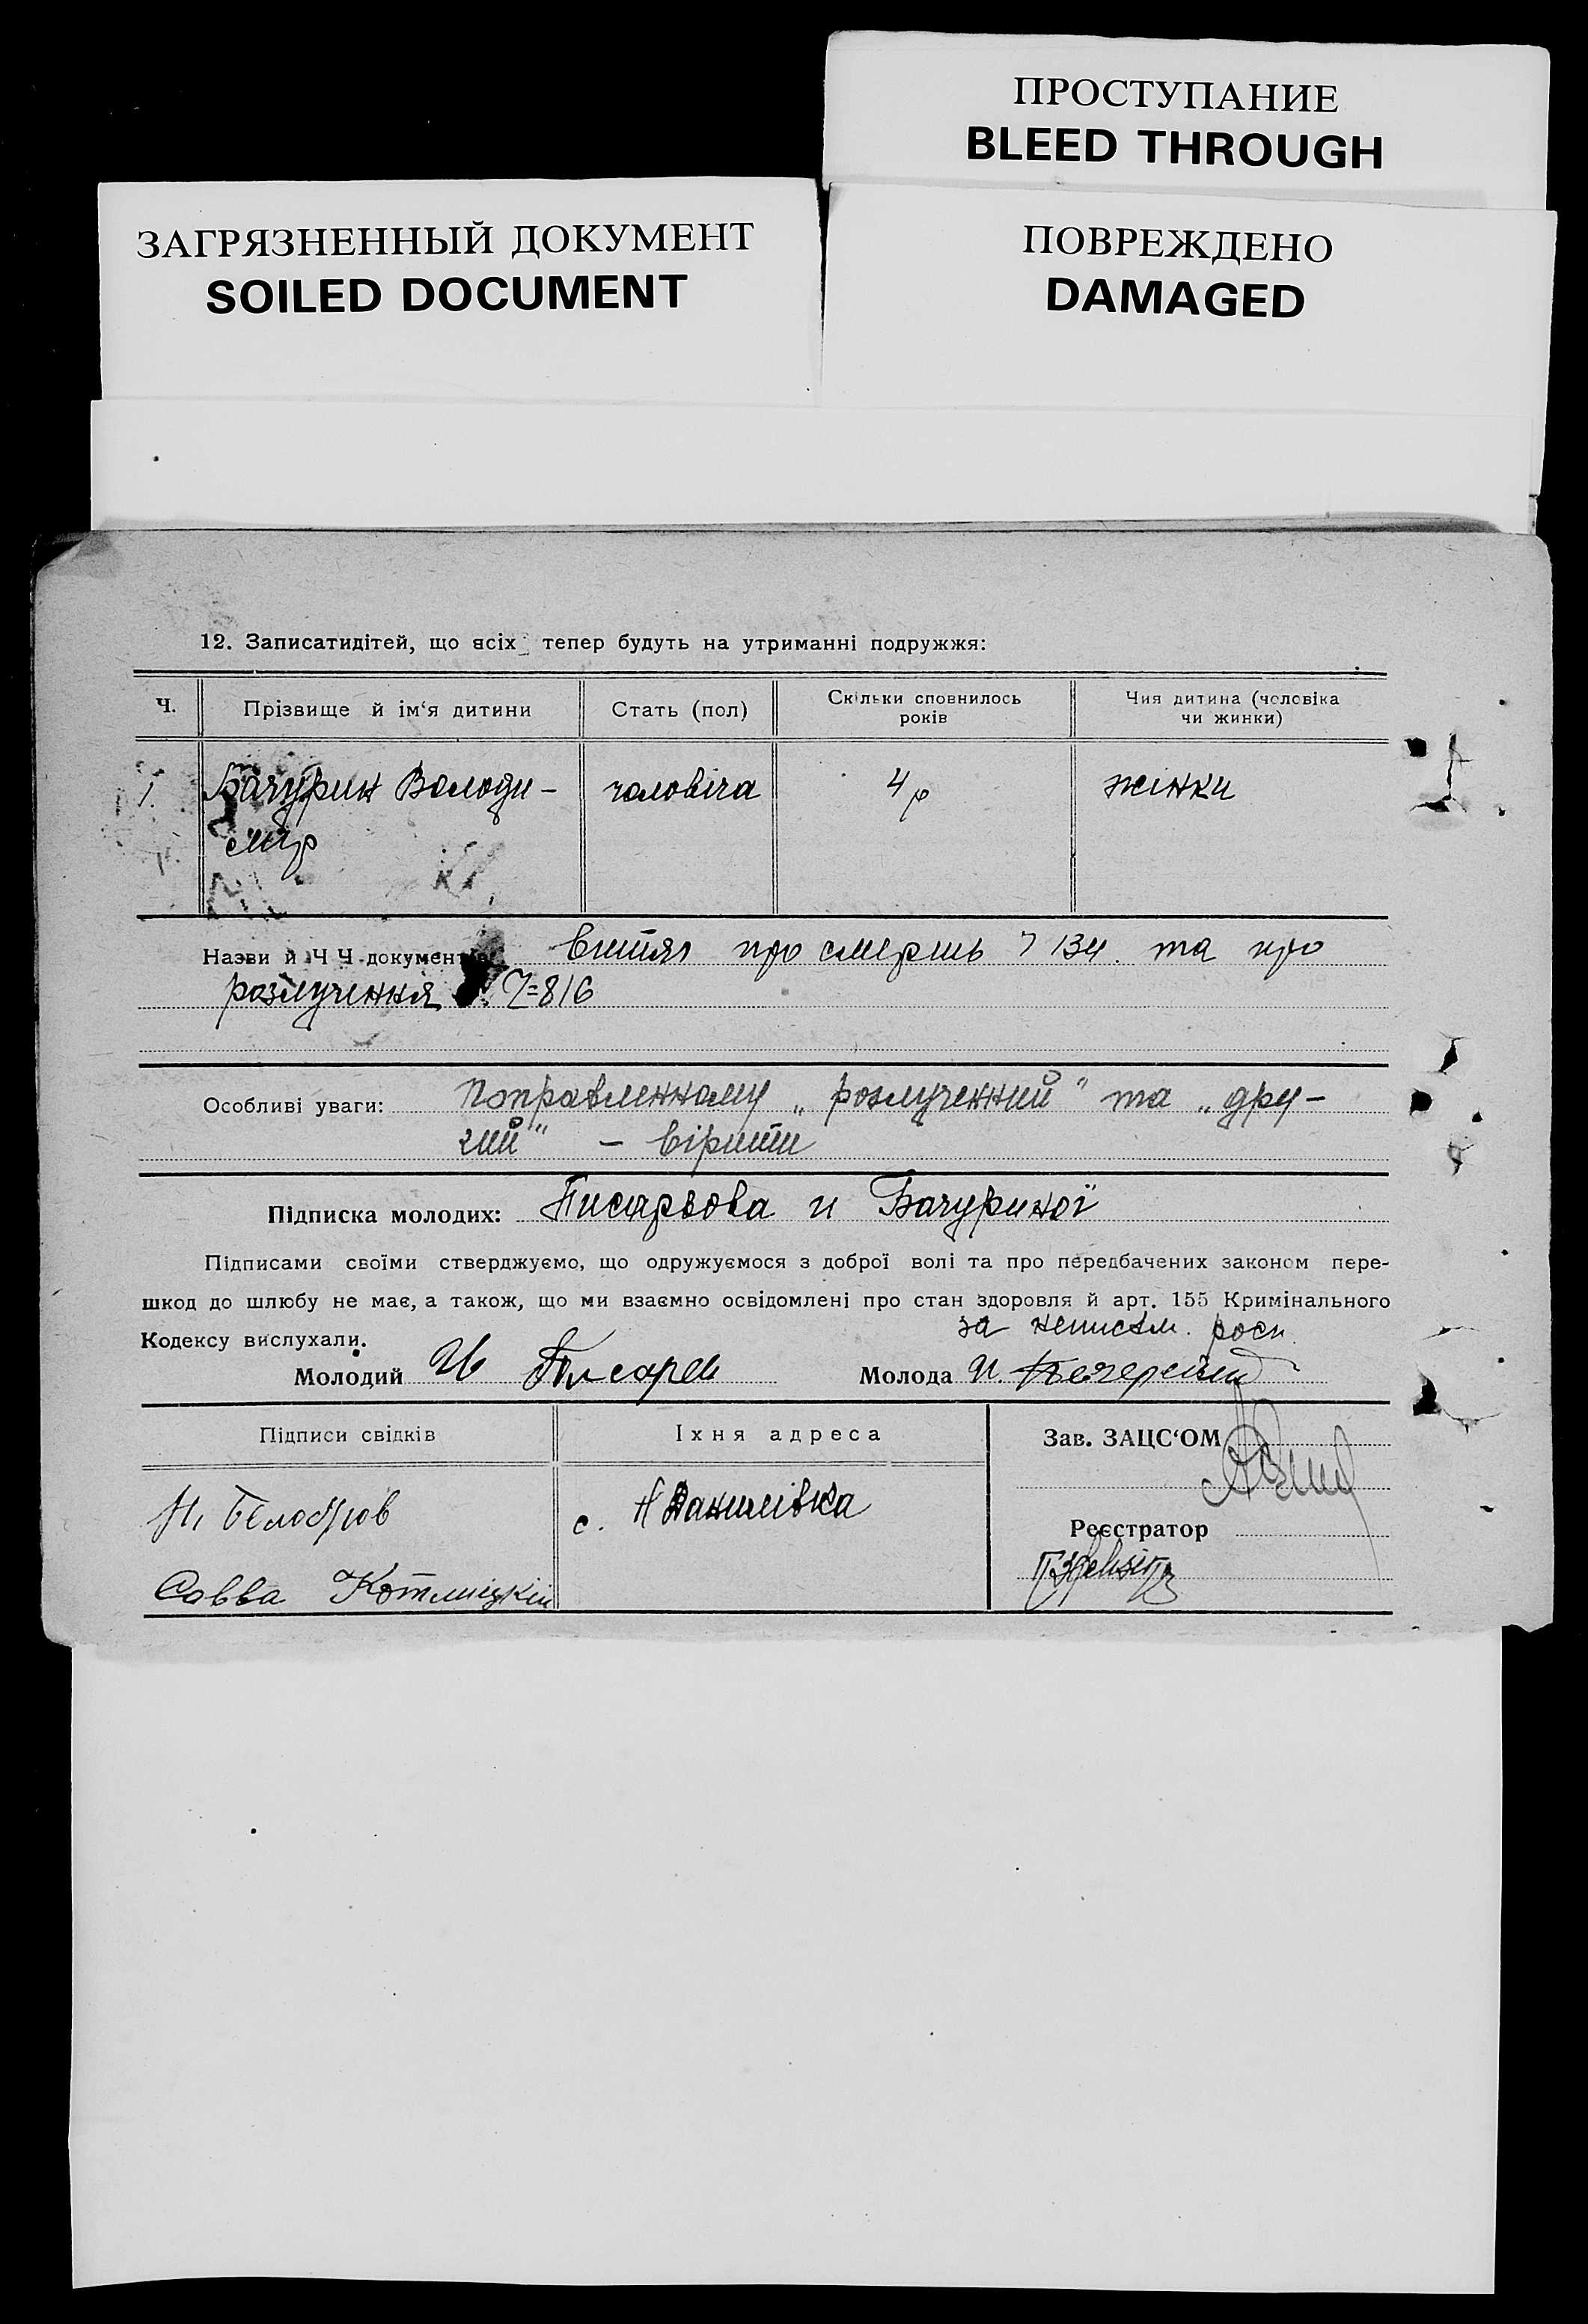 ПРОСТУПАНИЕ
BLEED THROUGH
ЗАГРЯЗНЕННЫЙ ДОКУМЕНТ
SOILED DOCUMENT
ПОВРЕЖДЕНО
DAMAGED
12. Записатидітей, що всіх тепер будуть на утриманні подружжя:
Ч. Прізвище й ім‘я дитини Стать (пол) Скільки сповнилось років Чия дитина (чоловіка чи жинки)
1. Бачурин Володи- чоловіча 4 р жінки
мир
Назви й Ч Ч документів Витяг про смерть Ч 134. та про
розлучення Ч=816
Особливі уваги: Поправленному „розлученний“ та „дру-
гий“ – вірити
Підписка молодих: Писарьова и Бачуриної
Підписами своїми стверджуємо, що одружуємося з доброї волі та про передбачених законом пере-
шкод до шлюбу не має, а також, що ми взаємно освідомлені про стан здоровля й арт. 155 Кримінального
Кодексу вислухали.
за неписьм. росп.
Молодий И Писарев Молода И.
Підписи свідків Їхня адреса Зав. ЗАЦС‘ОМ
с. Н Данилівка
Реєстратор
Савва Котлицкій